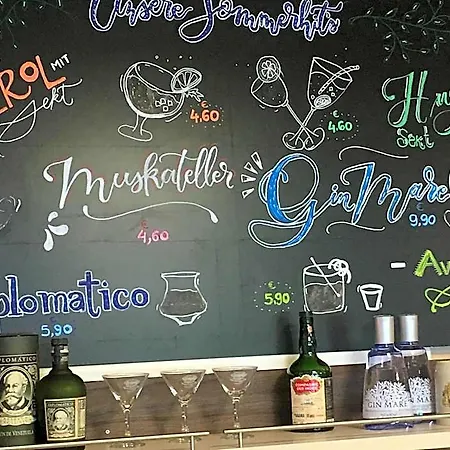 Unsere Sommerhits
EROL MIT
Sekt
€
4.60
€
4.60
Sekt
Muskateller
€
4,60
Gin Mare
€
9,90
plomatico
€
5,90
€
5.90
- Av
PLOMÁTICO
GIN MARE